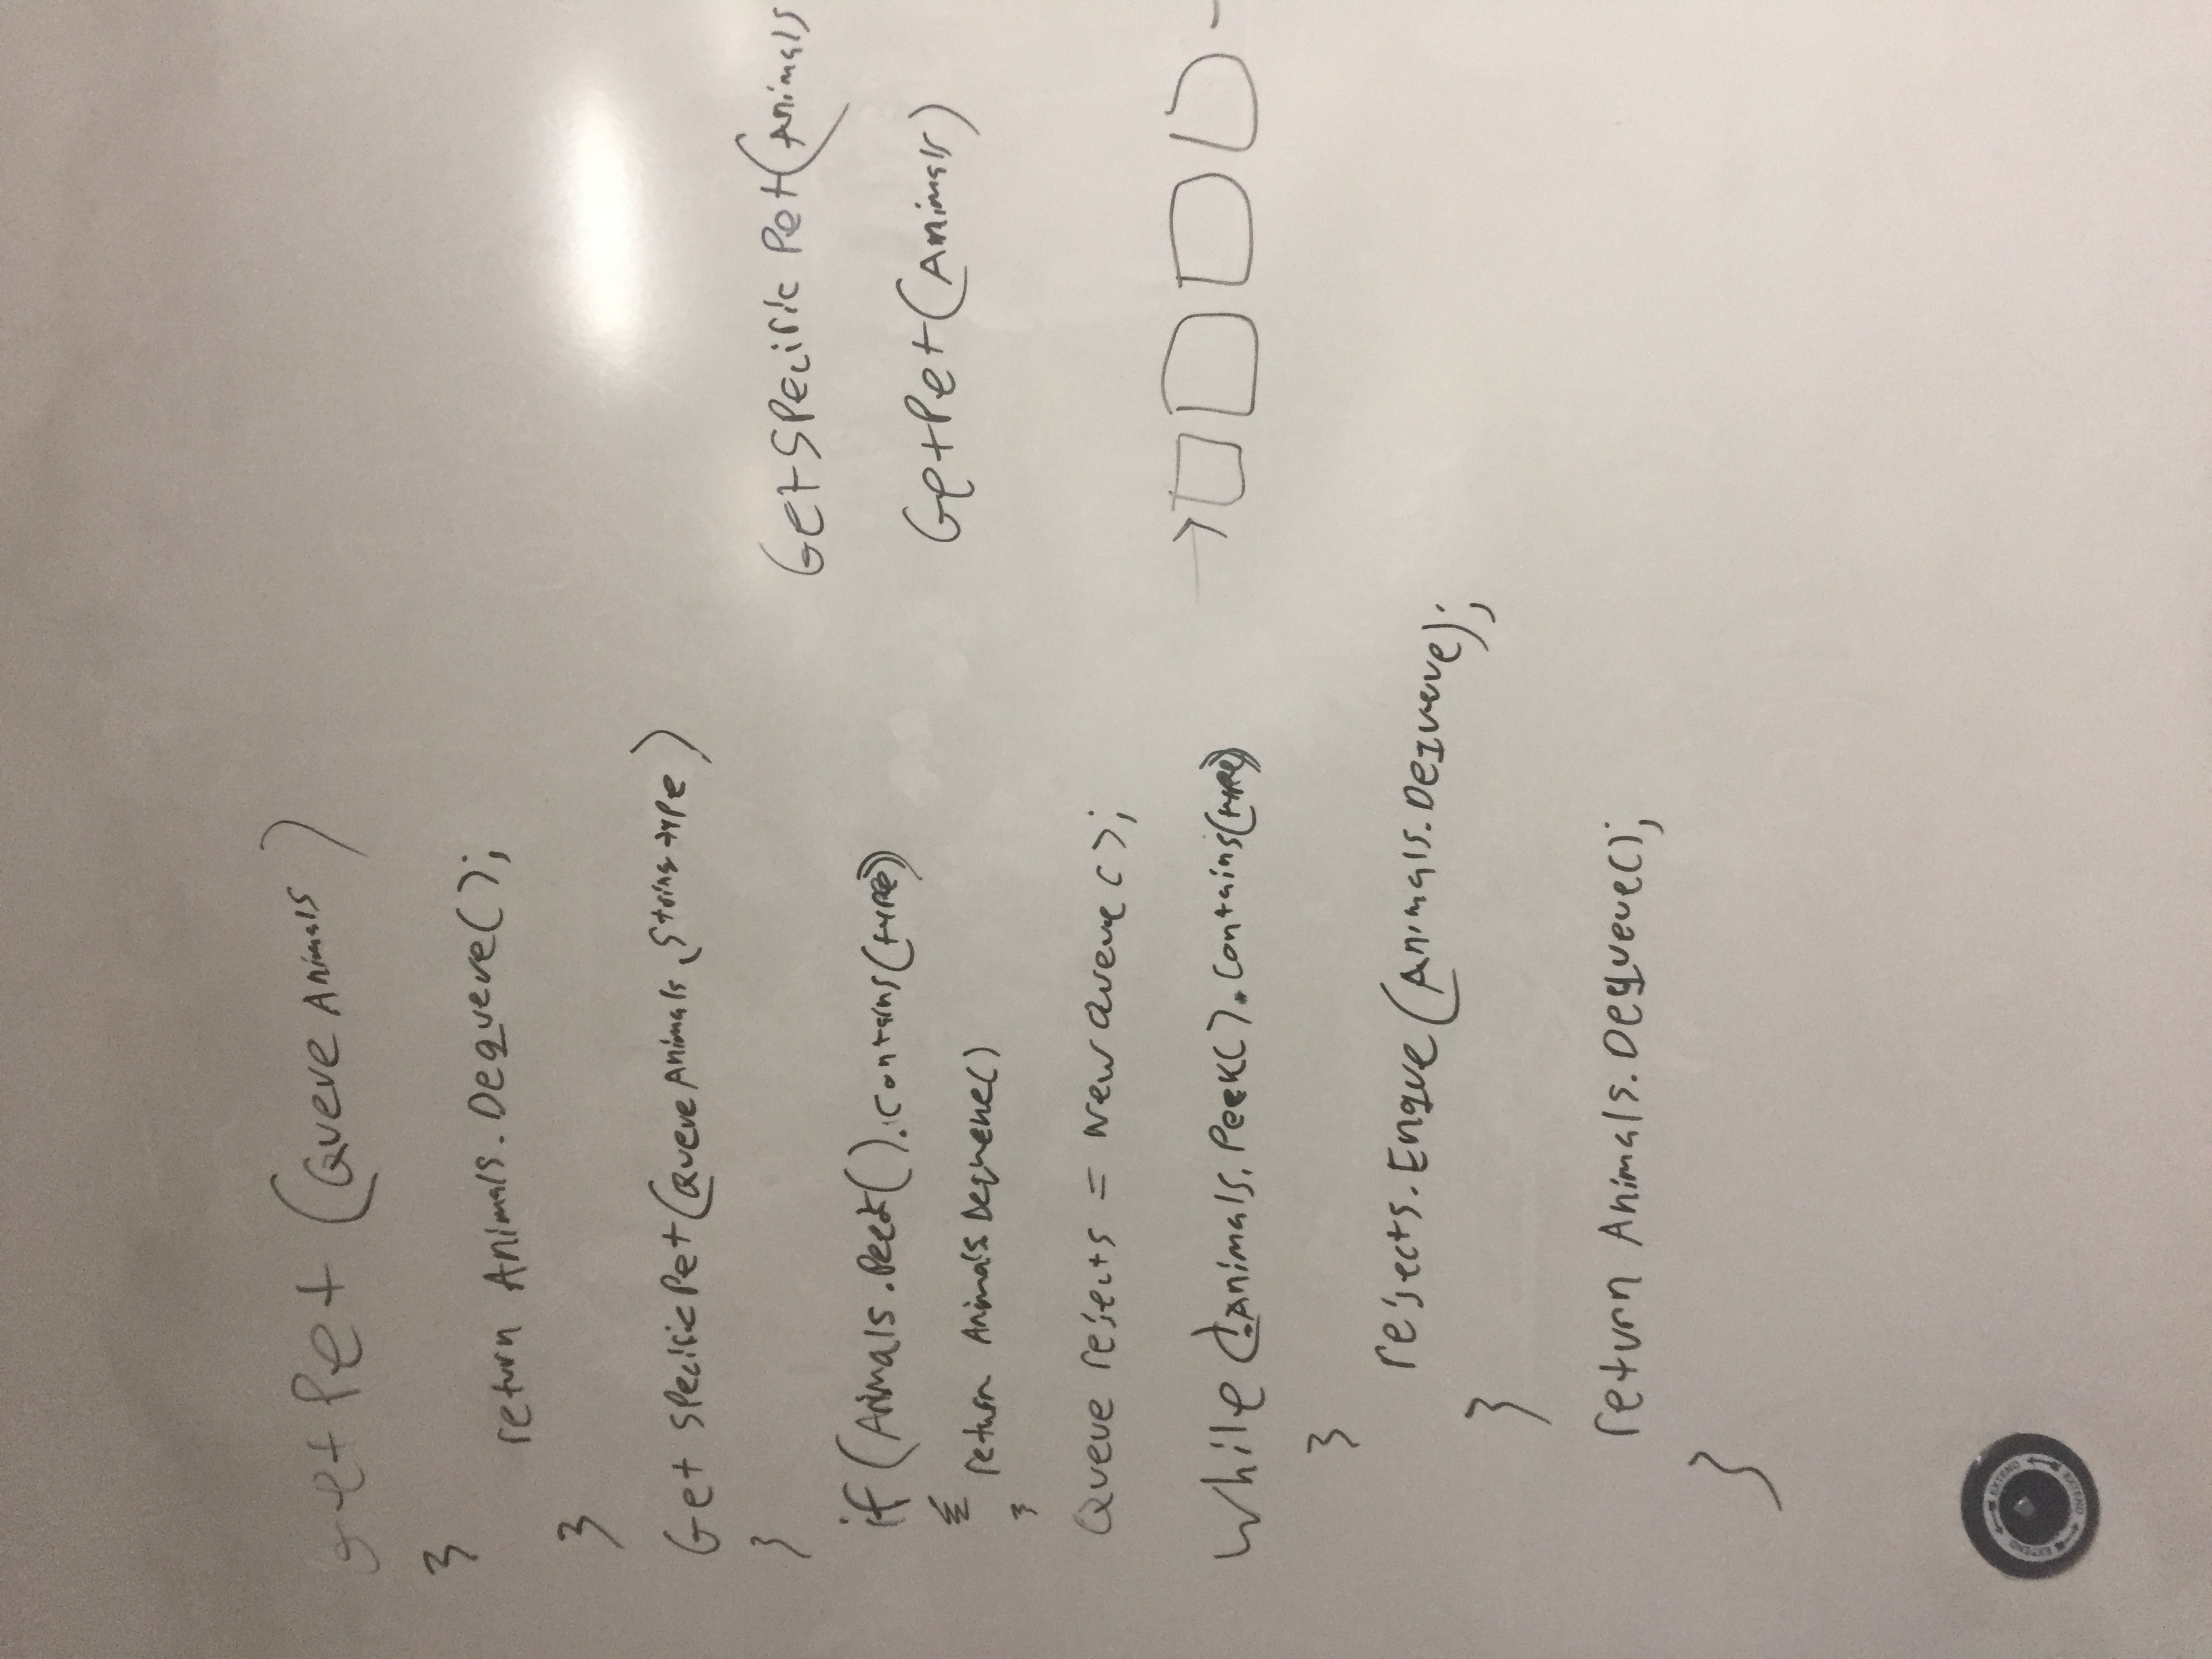 GetPet (Queue Animals)
}
return Animals.Dequeue();
}
Get SpecificPet(Queue Animals, String type)
}
if (Animals.Peek().contains(type))
{
return Animals.Dequeue()
}
Queue rejects = New Queue();
While (!Animals.Peek().Contains(type))
}
rejects.Enque(Animals.Dequeue);
}
return Animals.Dequeue();
}
GetSpecific Pet(Animals
GetPet(Animals)
EXTEND EXTEND EXTEND EXTEND